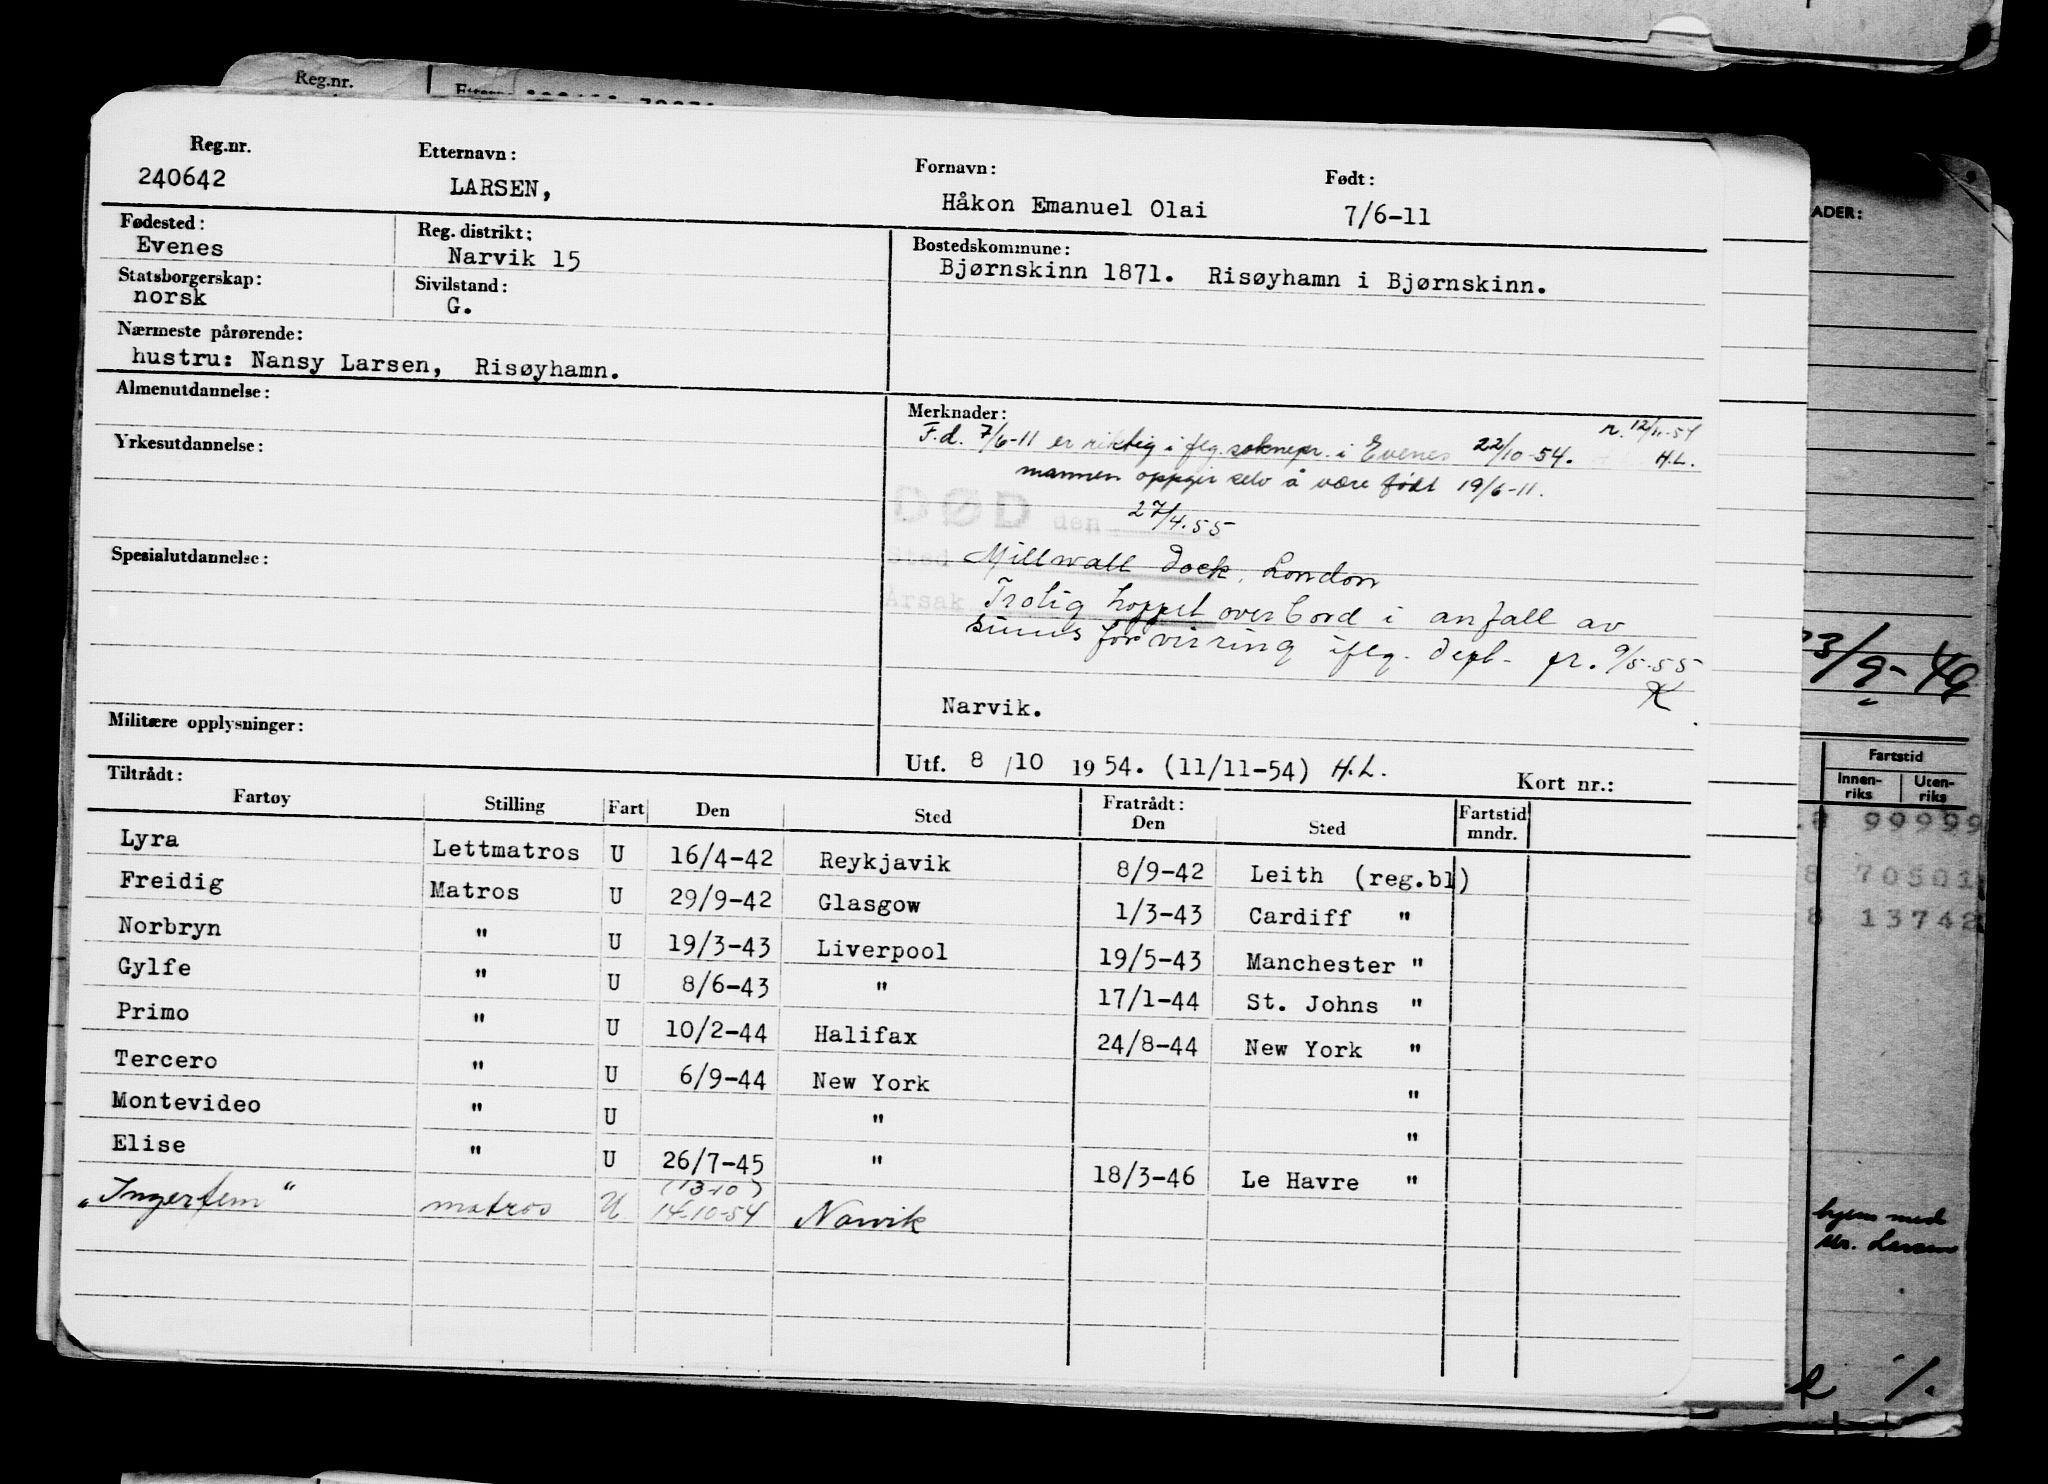 Reg.nr.
Reg.nr. Etternavn: Fornavn: Født:
240642 LARSEN, Håkon Emanuel Olai 7/6-11
Fødested: Reg. distrikt: Bostedskommune:
Evenes Narvik 15 Bjørnskinn 1871. Risøyhamn i Bjørnskinn.
Statsborgerskap: Sivilstand:
norsk G.
Nærmeste pårørende:
hustru: Nansy Larsen, Risøyhamn.
Almenutdannelse:
Yrkesutdannelse:
Spesialutdannelse:
Militære opplysninger:
Merknader: r. 12/11-54
F.d. 7/6-11 er riktig i flg. soknepr. i Evenes 22/10-54. H.L.
mannen oppgir selv å være født 19/6-11.
DØD den 27/4.55
Sted Millwall Dock, London
Årsak Trolig hoppet overbord i anfall av
sinnsforvirring iflg. Depl. pr. 9/5.55
K
Narvik.
Utf. 8/10 1954. (11/11-54) H.L. Kort nr.:
Tiltrådt: Fratrådt: Fartstid
Fartøy Stilling Fart Den Sted Den Sted mndr.
Lyra Lettmatros U 16/4-42 Reykjavik 8/9-42 Leith (reg.bl)
Freidig Matros U 29/9-42 Glasgow 1/3-43 Cardiff "
Norbryn " U 19/3-43 Liverpool 19/5-43 Manchester "
Gylfe " U 8/6-43 " 17/1-44 St. Johns "
Primo " U 10/2-44 Halifax 24/8-44 New York "
Tercero " U 6/9-44 New York "
Montevideo " U " "
Elise " U 26/7-45 " 18/3-46 Le Havre "
(13-10)
"Ingerfem" matros U 14-10-54 Narvik
ADER:
23/9-49
Fartstid
Innen-riks Uten-riks
8 99999
8 70501
8 13742
hjem med
Larsen